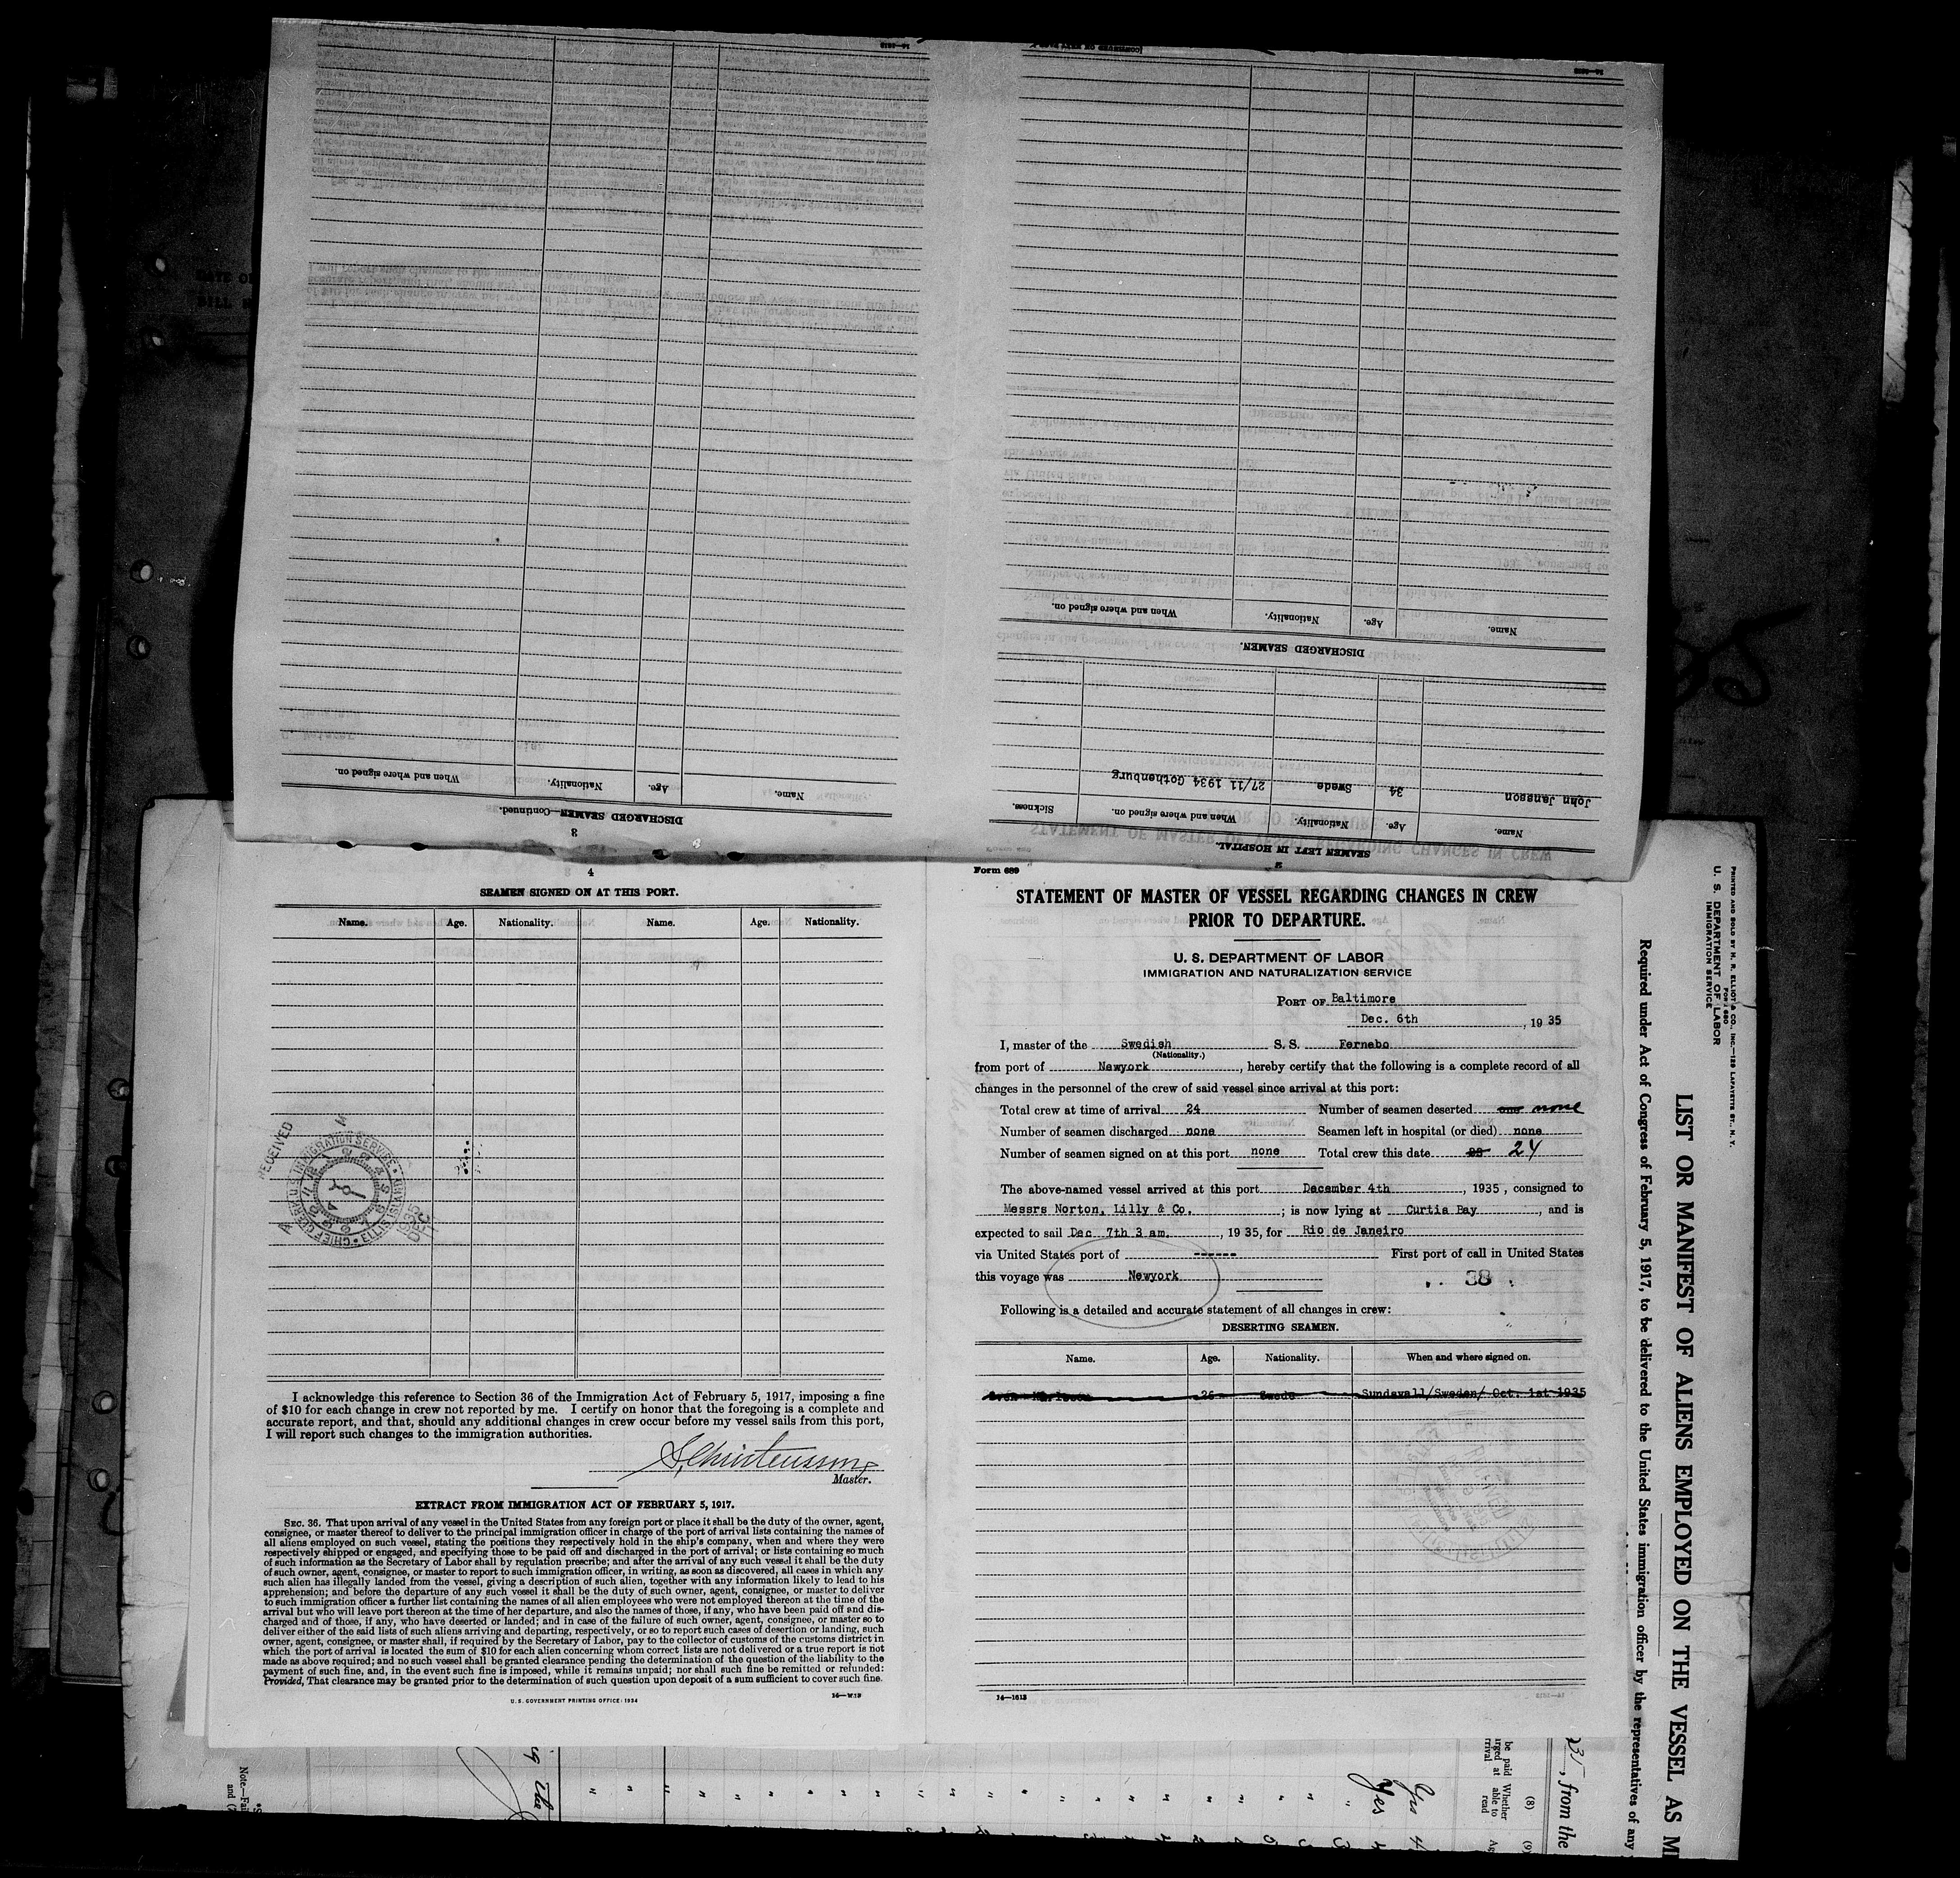 3
DISCHARGED SEAMEN—Continued.
Name. Age. Nationality. When and where signed on.
2
SEAMEN LEFT IN HOSPITAL.
Name. Age. Nationality. When and where signed on. Sickness.
John Jansson 34 Swede 27/11 1934 Gothenburg
DISCHARGED SEAMEN.
Name. Age. Nationality. When and where signed on.
4
SEAMEN SIGNED ON AT THIS PORT.
Name. Age. Nationality. Name. Age. Nationality.
RECEIVED
CHIEF CLERK U.S. IMMIGRATION SERVICE • ELLIS ISLAND
1935
DEC
I acknowledge this reference to Section 36 of the Immigration Act of February 5, 1917, imposing a fine
of $10 for each change in crew not reported by me. I certify on honor that the foregoing is a complete and
accurate report, and that, should any additional changes in crew occur before my vessel sails from this port,
I will report such changes to the immigration authorities.
Master.
EXTRACT FROM IMMIGRATION ACT OF FEBRUARY 5, 1917.
SEC. 36. That upon arrival of any vessel in the United States from any foreign port or place it shall be the duty of the owner, agent,
consignee, or master thereof to deliver to the principal immigration officer in charge of the port of arrival lists containing the names of
all aliens employed on such vessel, stating the positions they respectively hold in the ship's company, when and where they were
respectively shipped or engaged, and specifying those to be paid off and discharged in the port of arrival; or lists containing so much
of such information as the Secretary of Labor shall by regulation prescribe; and after the arrival of any such vessel it shall be the duty
of such owner, agent, consignee, or master to report to such immigration officer, in writing, as soon as discovered, all cases in which any
such alien has illegally landed from the vessel, giving a description of such alien, together with any information likely to lead to his
apprehension; and before the departure of any such vessel it shall be the duty of such owner, agent, consignee, or master to deliver
to such immigration officer a further list containing the names of all alien employees who were not employed thereon at the time of the
arrival but who will leave port thereon at the time of her departure, and also the names of those, if any, who have been paid off and dis-
charged and of those, if any, who have deserted or landed; and in case of the failure of such owner, agent, consignee, or master so to
deliver either of the said lists of such aliens arriving and departing, respectively, or so to report such cases of desertion or landing, such
owner, agent, consignee, or master shall, if required by the Secretary of Labor, pay to the collector of customs of the customs district in
which the port of arrival is located the sum of $10 for each alien concerning whom correct lists are not delivered or a true report is not
made as above required; and no such vessel shall be granted clearance pending the determination of the question of the liability to the
payment of such fine, and, in the event such fine is imposed, while it remains unpaid; nor shall such fine be remitted or refunded:
Provided, That clearance may be granted prior to the determination of such question upon deposit of a sum sufficient to cover such fine.
U. S. GOVERNMENT PRINTING OFFICE: 1934
Form 689
STATEMENT OF MASTER OF VESSEL REGARDING CHANGES IN CREW
PRIOR TO DEPARTURE.
U. S. DEPARTMENT OF LABOR
IMMIGRATION AND NATURALIZATION SERVICE
PORT OF Baltimore
Dec. 6th, 1935
I, master of the Swedish S. S. Fernebo
(Nationality.)
from port of Newyork, hereby certify that the following is a complete record of all
changes in the personnel of the crew of said vessel since arrival at this port:
Total crew at time of arrival 24 Number of seamen deserted none
Number of seamen discharged none Seamen left in hospital (or died) none
Number of seamen signed on at this port none Total crew this date 24
The above-named vessel arrived at this port December 4th, 1935, consigned to
Messrs Norton, Lilly & Co.; is now lying at Curtis Bay, and is
expected to sail Dec 7th 3 am., 1935, for Rio de Janeiro
via United States port of ------ First port of call in United States
this voyage was Newyork
38
Following is a detailed and accurate statement of all changes in crew:
DESERTING SEAMEN.
Name. Age. Nationality. When and where signed on.
26 Swede Sundsvall/Sweden/ Oct. 1st 1935
14—1613
PRINTED AND SOLD BY H. R. ELLIOT & CO., INC.—129 LAFAYETTE ST., N. Y.
FORM 680
U. S. DEPARTMENT OF LABOR
IMMIGRATION SERVICE
LIST OR MANIFEST OF ALIENS EMPLOYED ON THE VESSEL AS M
Required under Act of Congress of February 5, 1917, to be delivered to the United States immigration officer by the representatives of any
, from the
(8) (9)
Whether able to read
Yes
Note.—Fai